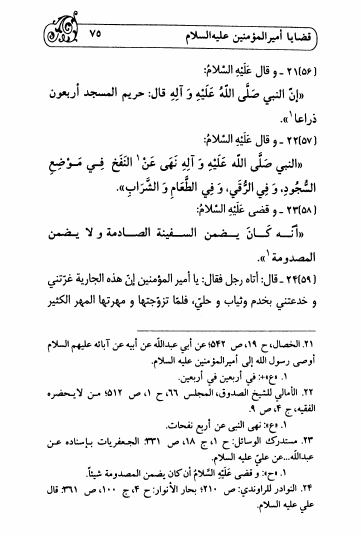 قضايا أميرالمؤمنين عليه‌السلام
٧٥
٢١(٥٦ـ و قال عَلَيْهِ السَّلامُ:
«إنّ النبي صَلَّى اللهُ عَلَيْهِ وَ آلِهِ قال: حريم المسجد أربعون
ذراعا١».
٢٢(٥٧ـ و قال عَلَيْهِ السَّلامُ:
«النبي صَلَّى الله عَلَيْهِ وَ آلِهِ نَهَى عَنْ١ النَّفخَ فِـي مَـوْضِعِ
السُّجُودِ، وَ فِي الرُّقَي، وَ فِي الطَّعَامِ وَ الشَّرَابِ».
٢٣(٥٨ـ و قضى عَلَيْهِ السَّلامُ:
«أنّـه كَـانَ يـضمن السـفينة الصـادمة و لا يـضمن
المصدومة١».
٢٤(٥٩ـ قال: أتاه رجل فقال: يا أمير المؤمنين إنّ هذه الجارية غرّتني
و خدعتني بخدم وثياب و حليّ، فلمّا تزوّجتها و مهرتها المهر الكثير
٢١. الخصال، ح ١٩، ص ٥٤٢؛ عن أبي عبدالله عن أبيه عن آبائه عليهم السلام
أوصى رسول الله إلى أميرالمؤمنين عليه السلام.
١. «ع»+: في أربعين في أربعين.
٢٢. الأمالي للشيخ الصدوق، المجلس ٦٦، ح ١، ص ٥١٢؛ مـن لايـحضره
الفقيه، ج ٤، ص ٩.
١. «ع»: نهى النبى عن أربع نفحات.
٢٣. مستدرك الوسائل: ح ١، ج ١٨، ص ٣٣١: الجعفريات بـإسناده عـن
عبدالله...عن عليّ عليه السلام.
١. «ح»: و قضى عَلَيْهِ السَّلامُ أن كان يضمن المصدومة شيئاً.
٢٤. النوادر للراوندي: ص ٢١٠؛ بحار الأنوار: ح ٤، ج ١٠٠، ص ٣٦١: قال
علي عليه السلام.